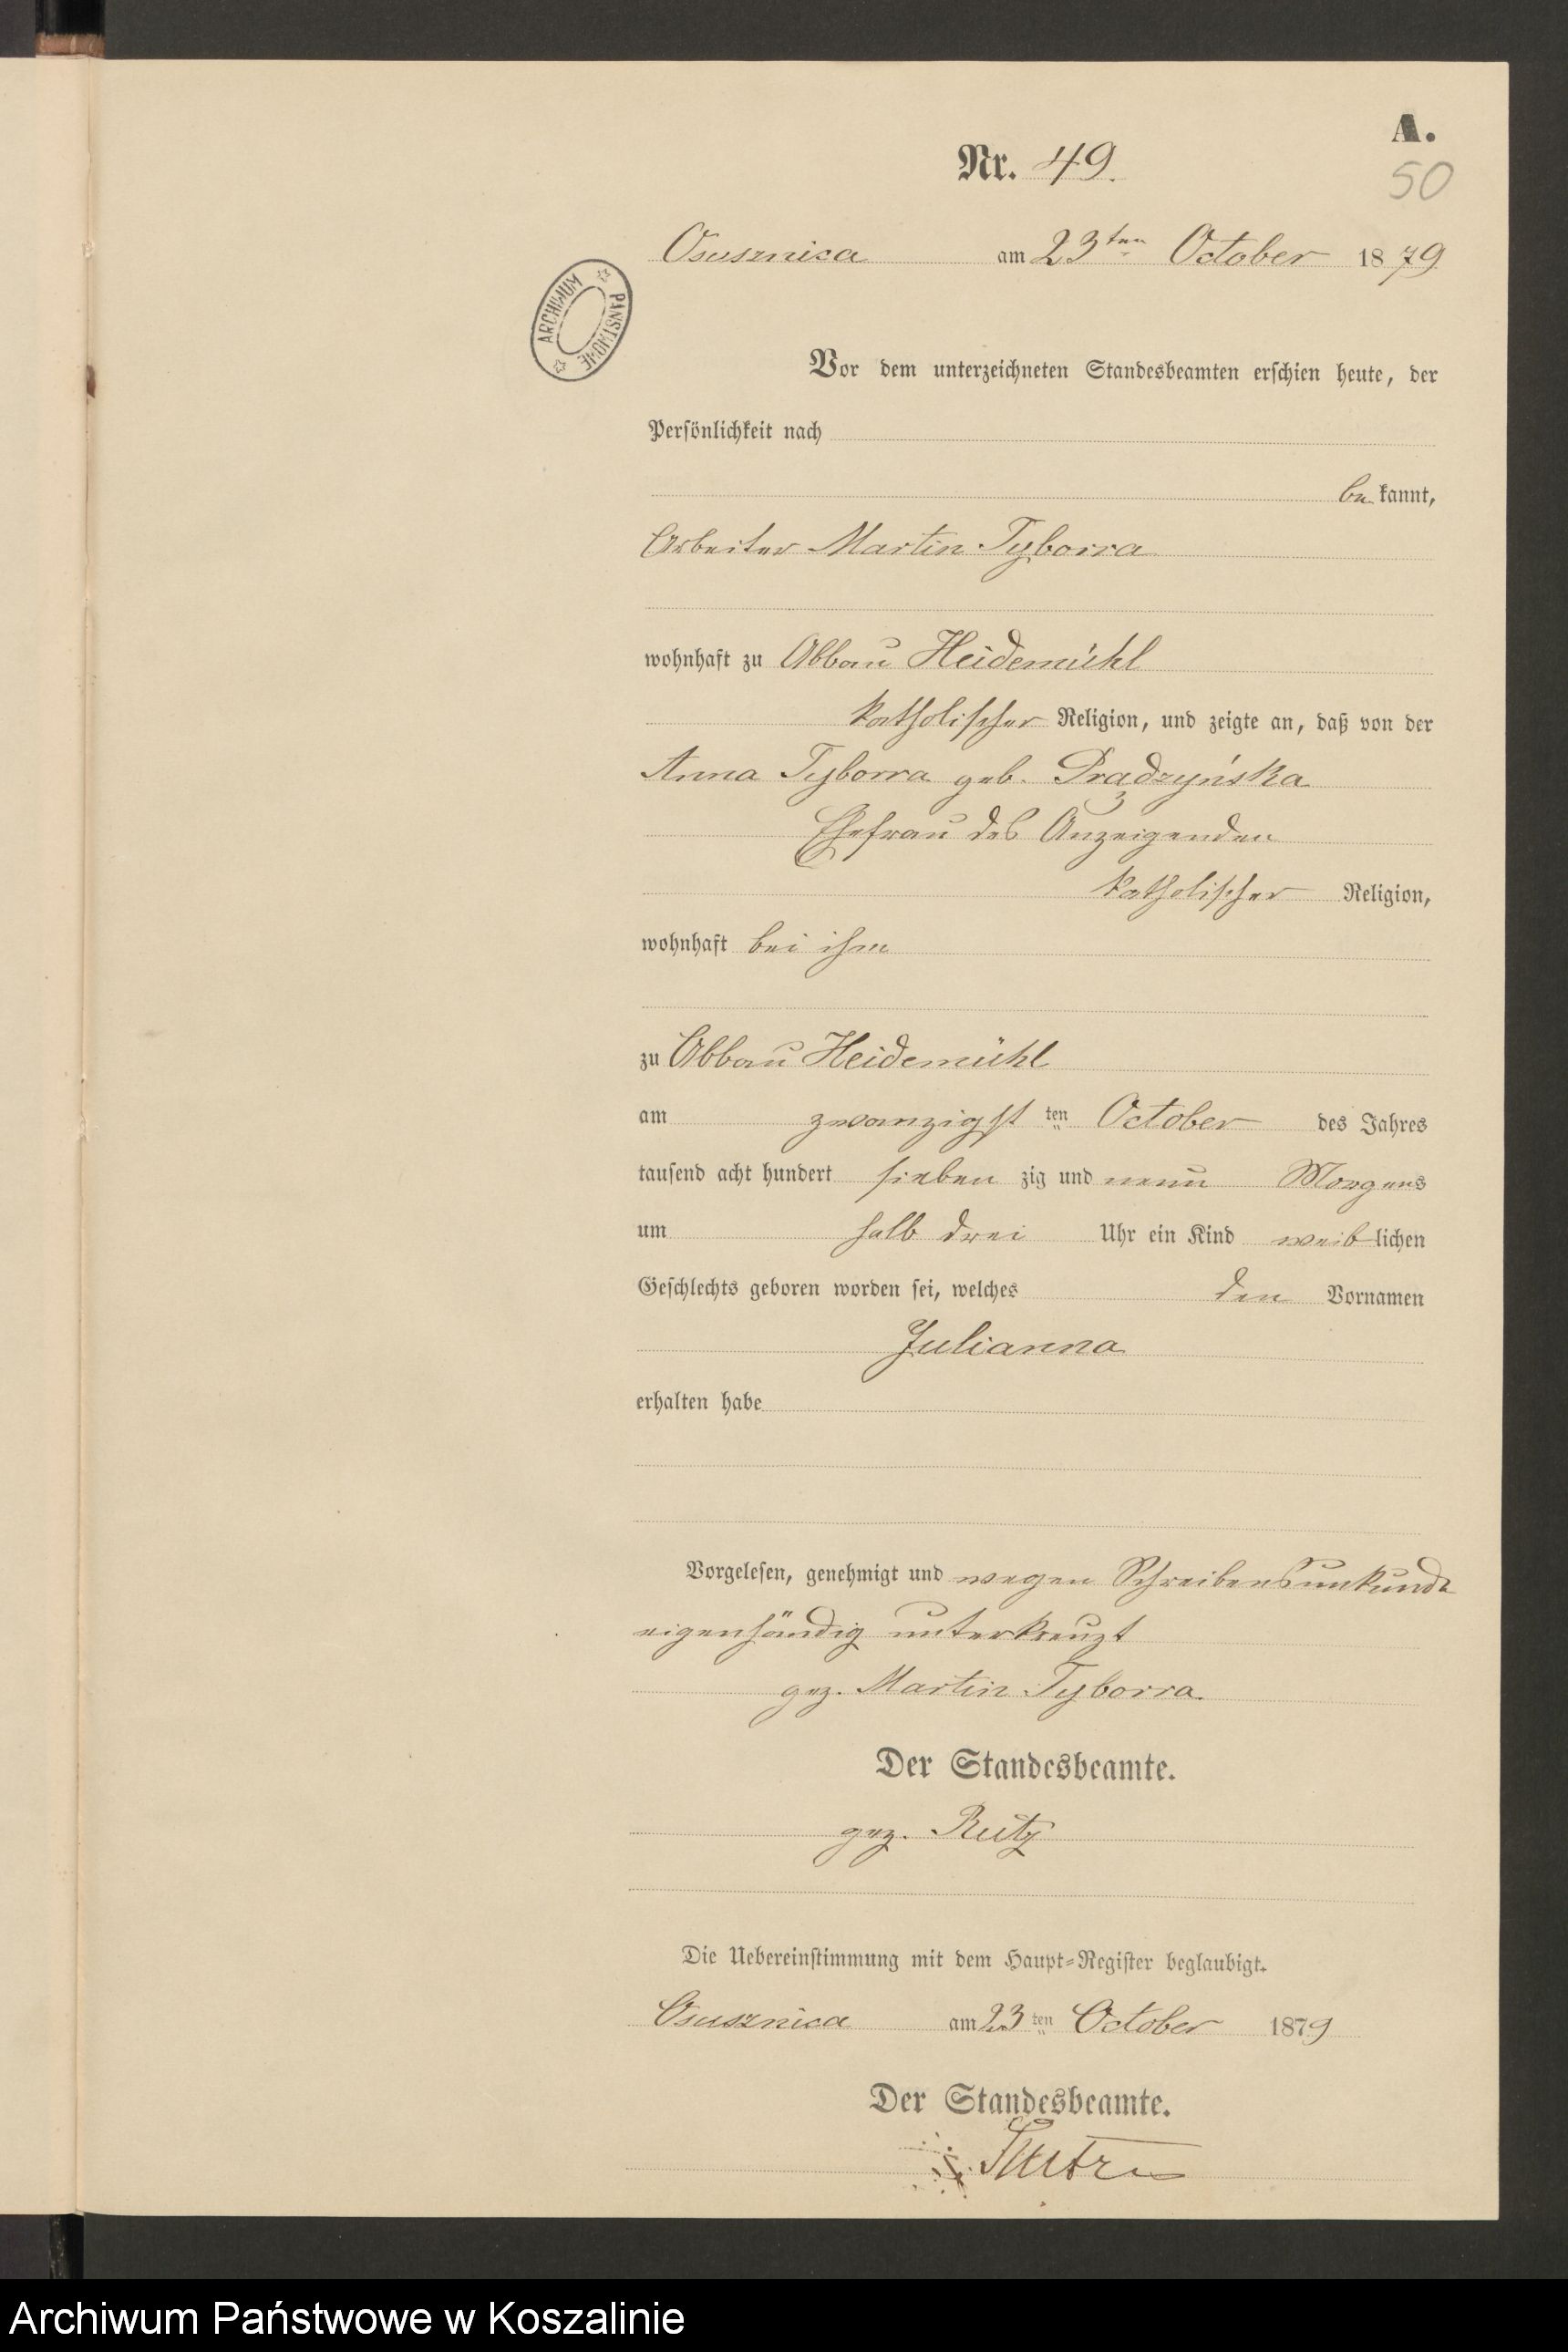 A.
Nr. 49.
50
Osusznica am 23ten October 1879
ARCHIWUM PAŃSTWOWE
Vor dem unterzeichneten Standesbeamten erschien heute, der
Persönlichkeit nach
be kannt,
Arbeiter Martin Tyborra
wohnhaft zu Abbau Heidemühl
katholischer Religion, und zeigte an, daß von der
Anna Tyborra geb. Pradzyńska
Ehefrau des Anzeigenden
katholischer Religion,
wohnhaft bei ihm
zu Abbau Heidemühl
am zwanzigst ten October des Jahres
tausend acht hundert sieben zig und neun Morgens
um halb drei Uhr ein Kind weiblichen
Geschlechts geboren worden sei, welches den Vornamen
Julianna
erhalten habe
Vorgelesen, genehmigt und wegen Schreibensunkunde
eigenhändig unterkreuzt
gez. Martin Tyborra.
Der Standesbeamte.
gez. Rutz
Die Uebereinstimmung mit dem Haupt-Register beglaubigt.
Osusznica am 23 ten October 1879
Der Standesbeamte.
Archiwum Państwowe w Koszalinie